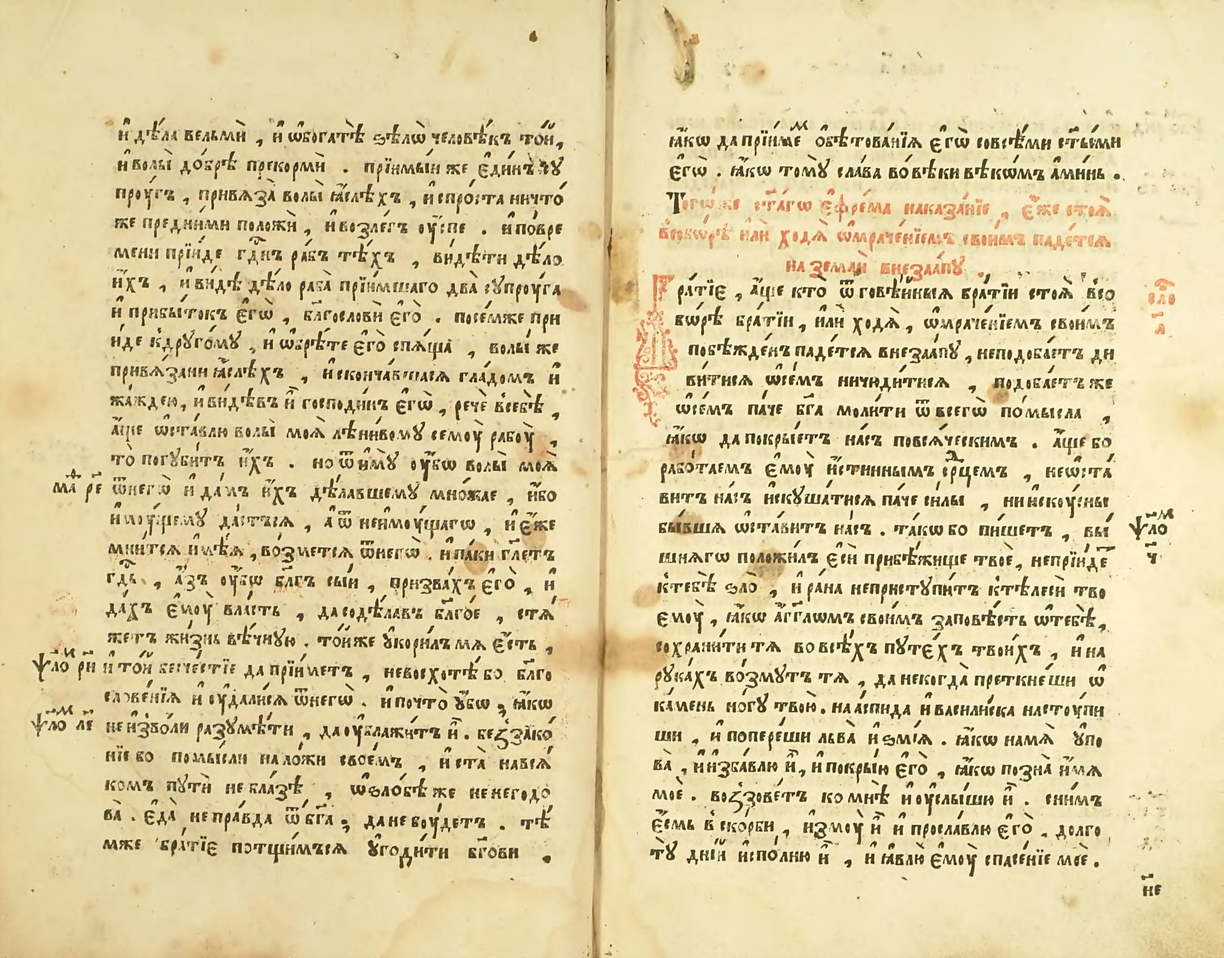 и҆ дѣ́ла вельмѝ , и҆ ѡ҆богатѣ̀ ѕѣлѡ̀ человѣ́къ то́й,
и҆ волы̀ до́брѣ прекормѝ . прїимы́й же є҆ди́нъ су
проу́гъ , привѧза̀ волы̀ ꙗ҆́слѣхъ , и҆ спро́ста ничто́
же пред̾ни́ми положѝ , и҆ возле́гъ оу҆́спе . и҆ повре
мени прїи́де гдⷭ҇нъ ра́бъ тѣ́хъ , ви́дѣти дѣ́ло
и҆́хъ , и҆ ви́дѣ дѣ́ло раба̀ прїи́мшаго два̀ супроу́га
и҆ прибы́токъ є҆гѡ̀ , блгⷭ҇ослови є҆го̀ . посе́мже при
и́де к̾друго́му , и҆ ѡ҆брѣ́те є҆го̀ спѧ́ща , волы́ же
привѧ́зани ꙗ҆́слѣхъ , и҆ сконча́вшасѧ гла́домъ и҆
жа́ждею, и҆ ви́дѣвъ и҆̀ господи́нъ є҆гѡ̀ , речѐ в̾себѣ̀ ,
а҆́ще ѡ҆ста́влю волы̀ моѧ̀ лѣни́вому семоу̀ рабоу̀ ,
то̀ погуби́тъ и҆́хъ . но ѿиму̀ оу҆́бѡ волы̀ моѧ̀
ма҇ ре҃ ѿнегѡ̀ и҆ да́мъ и҆́хъ дѣ́лавшему мно́жае , и҆́бо
и҆моу́щему да́стьсѧ , а҆ ѿ неимоу́щагѡ , и҆ є҆́же
мни́тсѧ и҆мѣ́ѧ , во́зметсѧ ѿнегѡ̀ . и҆ па́ки гл҃етъ
гдⷭ҇ь , а҆́зъ оу҆́бѡ бл҃гъ сы́й , призва́хъ є҆го̀ , и҆
да́хъ є҆моу̀ вла́сть , да содѣ́лавъ бл҃го́е , стѧ́
жетъ жи́знь вѣ́чную . то́йже укори́лъ мѧ є҆́сть ,
ѱⷧ҇ло рн҃ и҆ то́й безче́стїе да прїи́метъ , невосхотѣ́ бо бл҃го
слове́нїѧ и҆ оу҆дали́сѧ ѿнегѡ̀ . и҆ почто̀ у҆́бѡ , ꙗ҆́кѡ
ѱⷧ҇ло ле҃ не и҆зво́ли разумѣ́ти , да оу҆блажи́тъ и҆̀ . беззако́
нїе бо помы́сли на ло́жи свое́мъ , и҆ ста̀ на всѧ́
комъ путѝ не бла́зѣ , ѡ҆ ѕло́бѣ же не негодо
ва̀ . є҆да̀ непра́вда ѿ бг҃а ; да не боу́детъ . тѣ́
мже бра́тїе потщи́мъсѧ у҆годи́ти бг҃ови .
ꙗ҆́кѡ да прїи́меⷨ ѻ҆бѣтова́нїѧ є҆гѡ̀ совсѣ́ми ст҃ы́ми
є҆гѡ̀ . ꙗ҆́кѡ тому̀ сла́ва во вѣ́ки вѣкѡ́мъ а҆ми́нь .
Того́же ст҃агѡ є҆фре́ма наказа́нїе , є҆́же стоѧ̀
всобо́рѣ и҆лѝ ходѧ̀ ѡ҆мраче́нїемъ свои́мъ паде́тсѧ
на землѝ внеза́апу .
Бра́тїе , а҆́ще кто̀ ѿ говѣ́йныѧ бра́тїи стоѧ̀ всо
бо́рѣ бра́тїи, и҆лѝ ходѧ̀ , ѡ҆мраче́нїемъ свои́мъ
побѣжде́нъ паде́тсѧ внеза́апу , неподоба́етъ ди
ви́тисѧ ѡ҆се́мъ ничюди́тисѧ , подоба́етъ же
ѡ҆се́мъ па́че бг҃а моли́ти ѿ всегѡ̀ по́мысла ,
ꙗ҆́кѡ да покры́етъ на́съ повсѧ́ческимъ . а҆́ще бо
рабо́таемъ є҆моу̀ и҆́стиннымъ ср҃цемъ , не ѡ҆ста́
витъ на́съ и҆скуша́тисѧ па́че си́лы , ни и҆скоу́сны
бы́вшѧ ѡ҆ста́витъ на́съ . та́кѡ бо пи́шетъ , вы́
ѱⷧ҇ло ч҃
шнѧгѡ положи́лъ є҆сѝ прибѣ́жище твоѐ , неприи́де
к̾тебѣ̀ ѕло̀ , и҆ ра́на непристу́питъ к̾тѣлесѝ тво
є҆моу̀ , ꙗ҆́кѡ а҆́гг҃лѡмъ свои́мъ заповѣ́сть ѡ҆тебѣ̀ ,
сохрани́ти тѧ во всѣ́хъ путе́хъ твои́хъ , и҆ на
рука́хъ во́змутъ тѧ , да некогда̀ преткне́ши ѡ҆
ка́мень но́гу твою̀ . на а҆́спида и҆ васили́ска насту́пи
ши , и҆ попере́ши льва̀ и҆ ѕмі́ѧ . ꙗ҆́кѡ на мѧ̀ у҆по
ва̀ , и҆ и҆зба́влю и҆̀ , и҆ покры́ю є҆го̀ , ꙗ҆́кѡ позна̀ и҆́мѧ
моѐ . воззове́тъ ко мнѣ̀ и҆ оу҆слы́шю и҆̀ . с̾ни́мъ
є҆́смь в̾ ско́рби , и҆змоу̀ и҆̀ и҆ просла́влю є҆го̀ . долго
ту̀ дні́й и҆спо́лню и҆̀ , и҆ ꙗ҆влю̀ є҆моу̀ спасе́нїе моѐ .
не